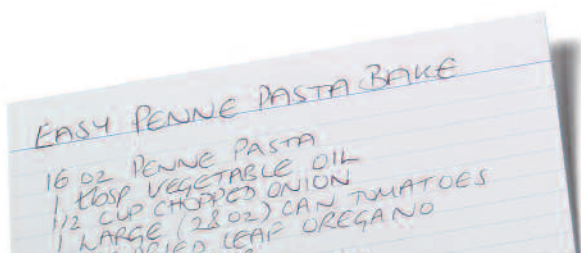 EASY PENNE PASTA BAKE
16 OZ PENNE PASTA
1 tbsp VEGETABLE OIL
1/2 CUP CHOPPED ONION
1 LARGE (28 OZ) CAN TOMATOES
DRIED LEAF OREGANO